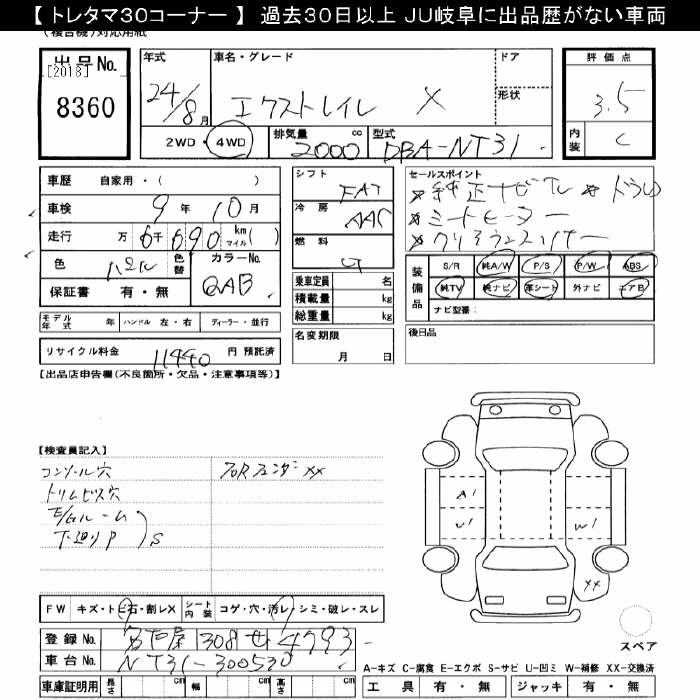 【 トレタマ30コーナー 】 過去30日以上 JU岐阜に出品歴がない車両
出品No.
[2018]
8360
年式 24/8月
車名・グレード エクストレイル X
ドア
形状
評価点 3.5
内装 C
2WD・4WD
排気量 2000 cc
型式 DBA-NT31
車歴 自家用・( )
車検 9年 10月
走行 万 6千690 km マイル( )
色 パール 色替
カラーNo. QAB
保証書 有・無
モデル年式 年 ハンドル 左・右 ディーラー・並行
リサイクル料金 11440 円 預託済
シフト FAT
冷房 AAC
燃料 G
乗車定員 名
積載量 kg
総重量 kg
名変期限 月 日
セールスポイント
純正ナビTV
シートヒーター
装備品
S/R 純A/W P/S P/W ABS
純TV 純ナビ 革シート 外ナビ エアB
ナビ型番:
後日品
【出品店申告欄(不良箇所・欠品・注意事項等)】
【検査員記入】
コンソール穴
トリムビス穴
E/Gルーム
下廻りP
S
フロRフェンダーXX
A1
U1
W1
XX
FW キズ・トビ石・割レX
シート内装 コゲ・穴・汚レ・シミ・破レ・スレ
登録No. 名古屋 308 せ 4793
車台No. NT31-300530
車庫証明用 長さ cm 幅 cm 高さ cm
スペア
A-キズ C-腐食 E-エクボ S-サビ U-凹ミ W-補修 XX-交換済
工具 有・無 ジャッキ 有・無